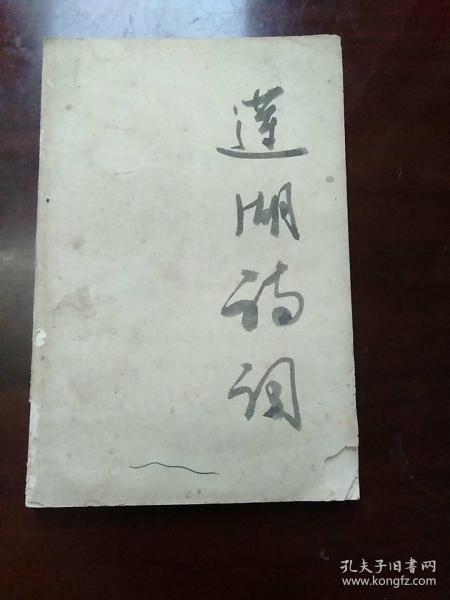 莲湖诗词
孔夫子旧书网
www.kongfz.com